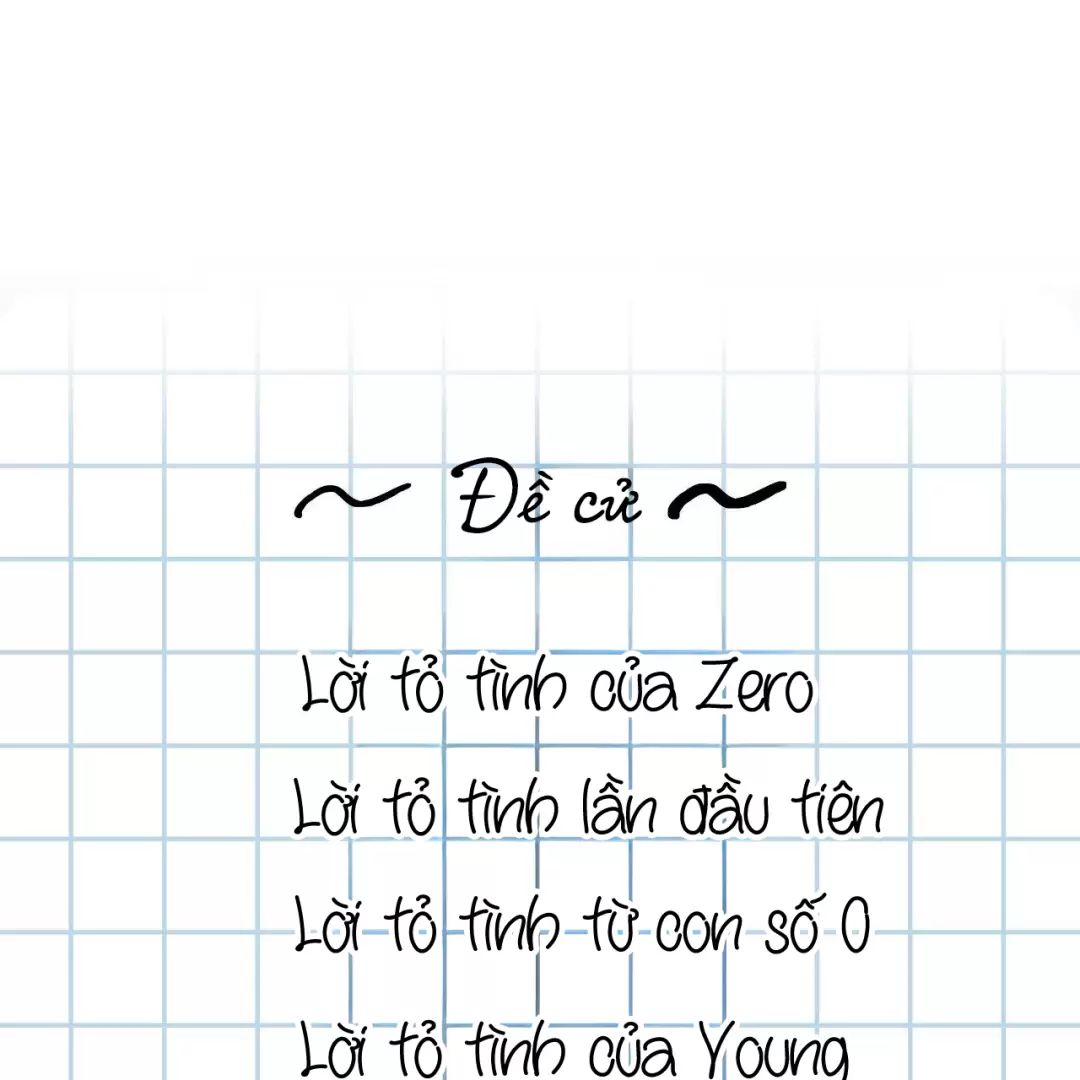 ~ Đề cử ~
Lời tỏ tình của Zero
Lời tỏ tình lần đầu tiên
Lời tỏ tình từ con số 0
Lời tỏ tình của Young